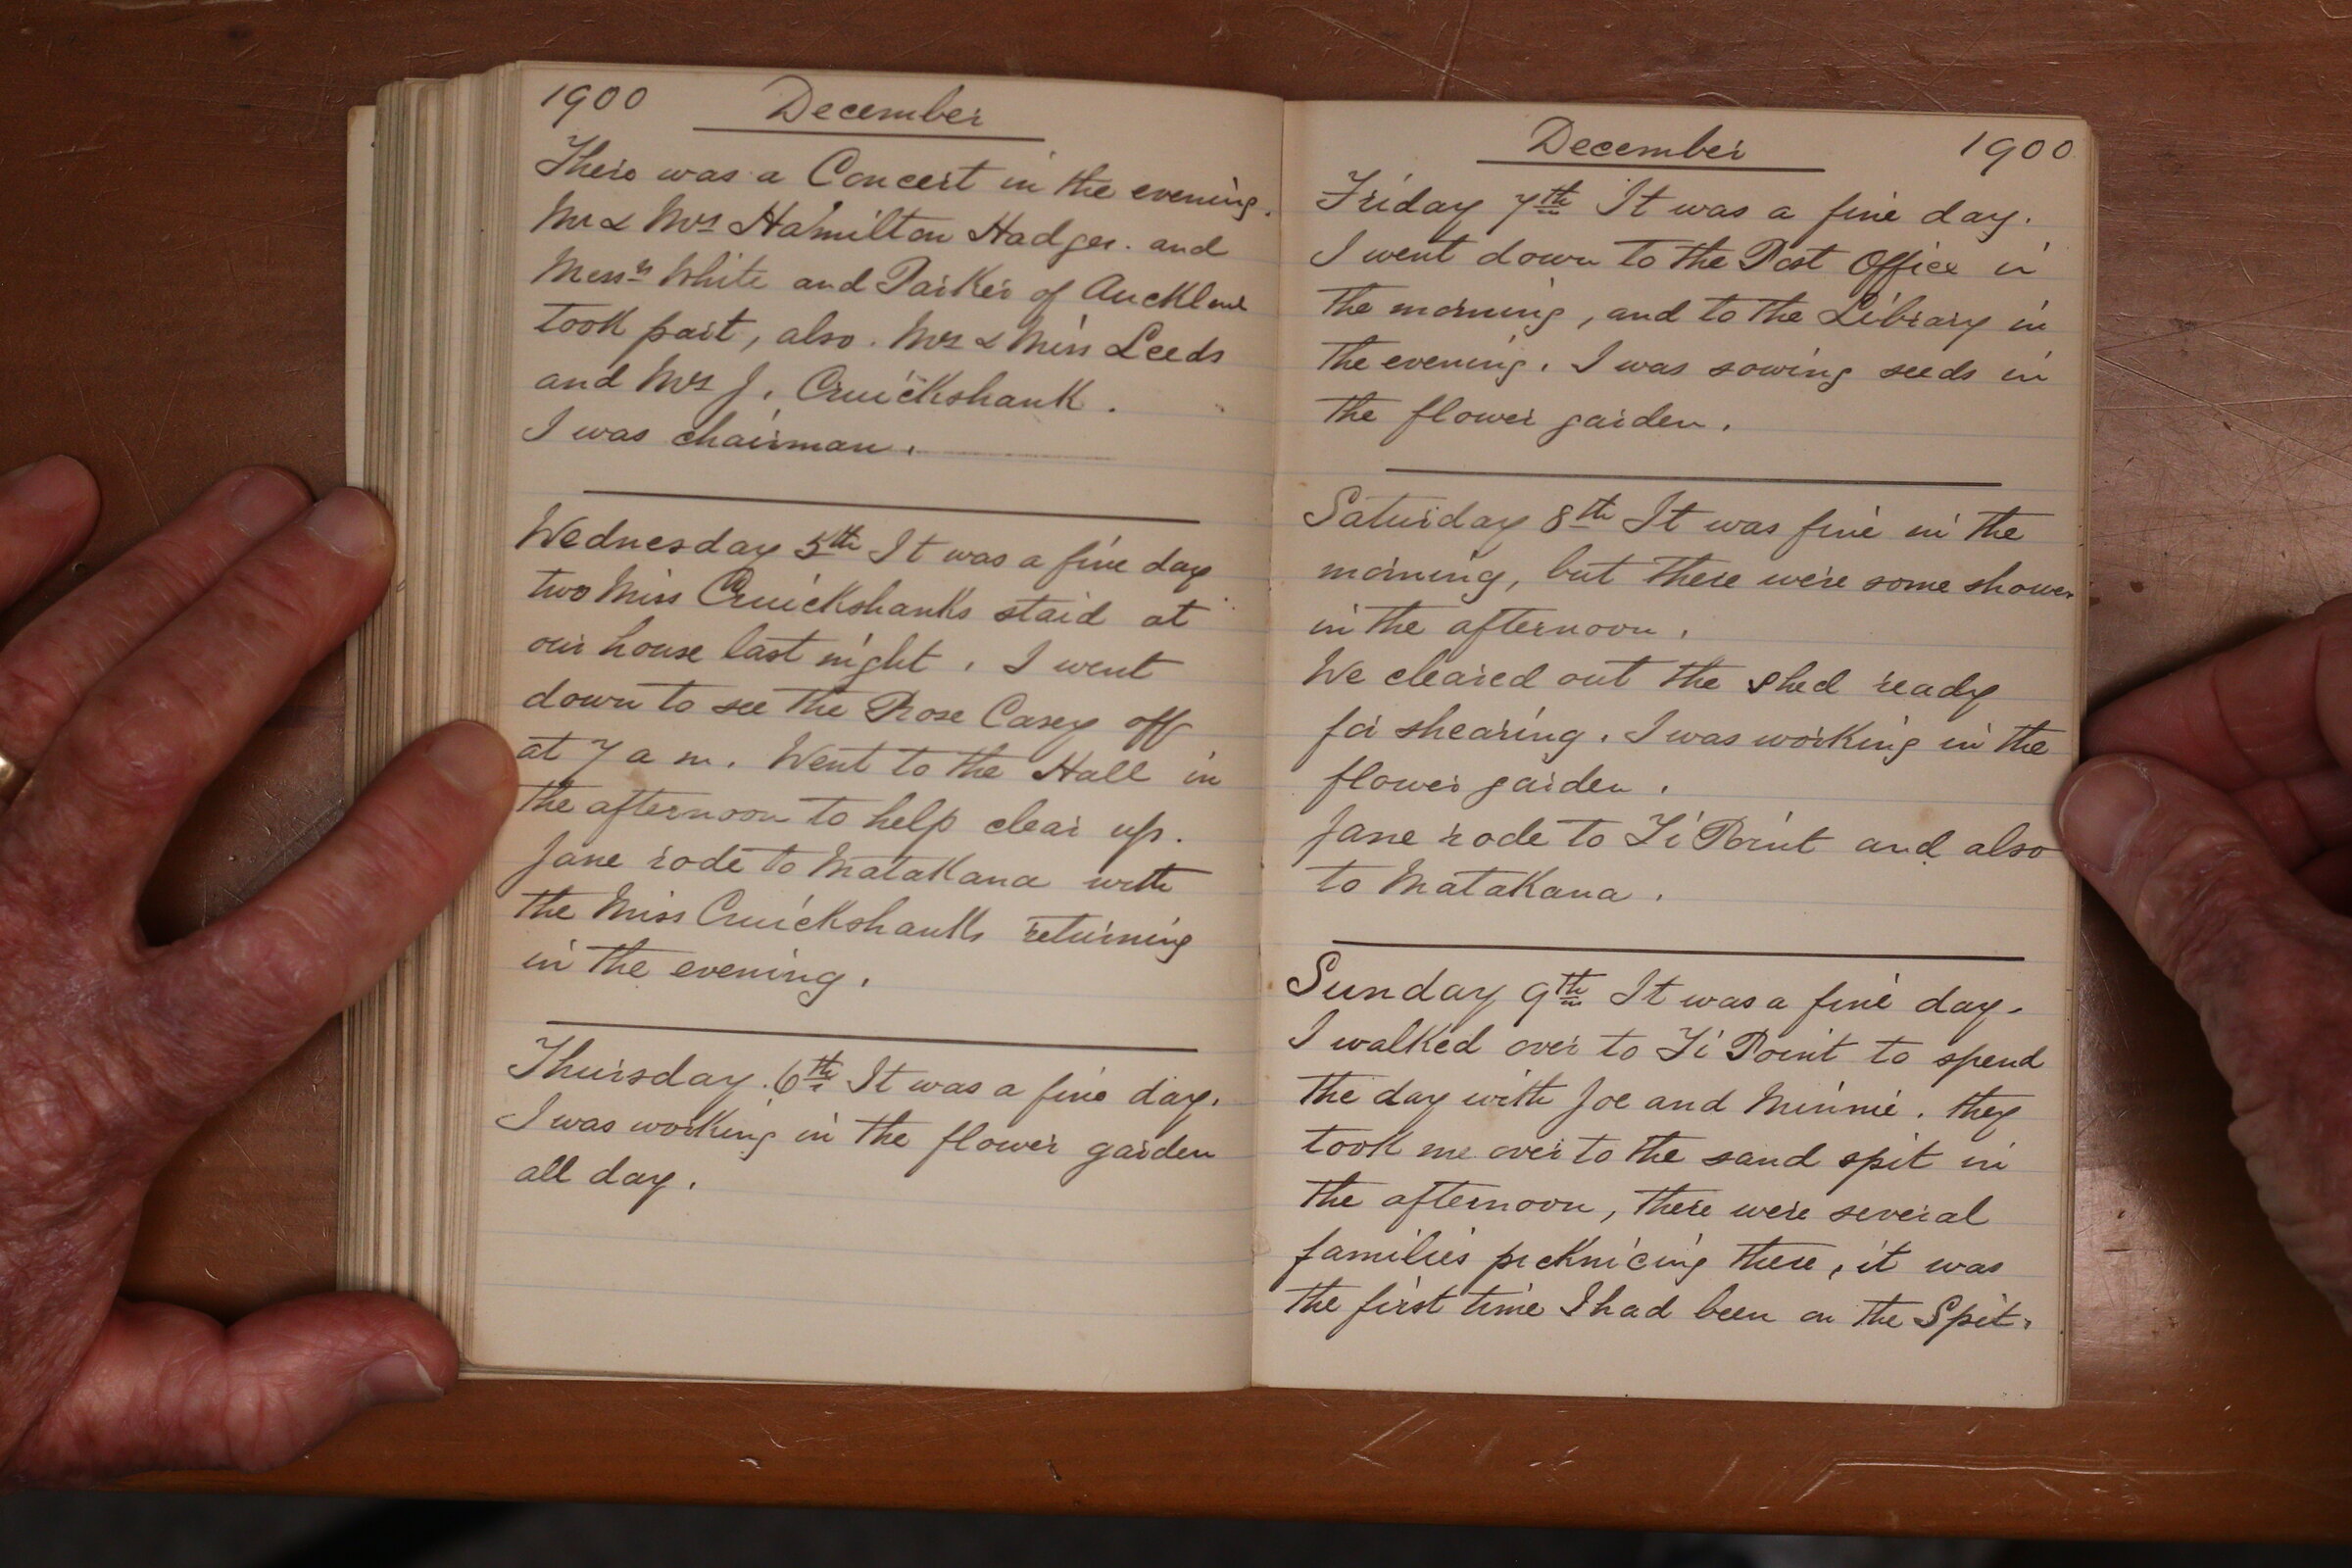 1900 December
There was a Concert in the evening.
Mr & Mrs Hamilton Hadger. and
Messrs White and Parker of Auckland
took part, also. Mrs & Miss Leeds
and Mrs J. Cruickshank.
I was chairman.
Wednesday 5th It was a fine day
two Miss Cruickshanks staid at
our house last night. I went
down to see the Rose Casey off
at 7 a m. Went to the Hall in
the afternoon to help clear up.
Jane rode to Matakana with
the Miss Cruickshanks returning
in the evening.
Thursday. 6th It was a fine day.
I was working in the flower garden
all day.
December 1900
Friday 7th It was a fine day.
I went down to the Post Office in
the morning, and to the Library in
the evening. I was sowing seeds in
the flower garden.
Saturday 8th It was fine in the
morning, but there were some showers
in the afternoon.
We cleared out the shed ready
for shearing. I was working in the
flower garden.
Jane rode to Ti Point and also
to Matakana.
Sunday 9th It was a fine day.
I walked over to Ti Point to spend
the day with Joe and Minnie. they
took me over to the sand spit in
the afternoon, there were several
families picknicing there, it was
the first time I had been on the Spit.